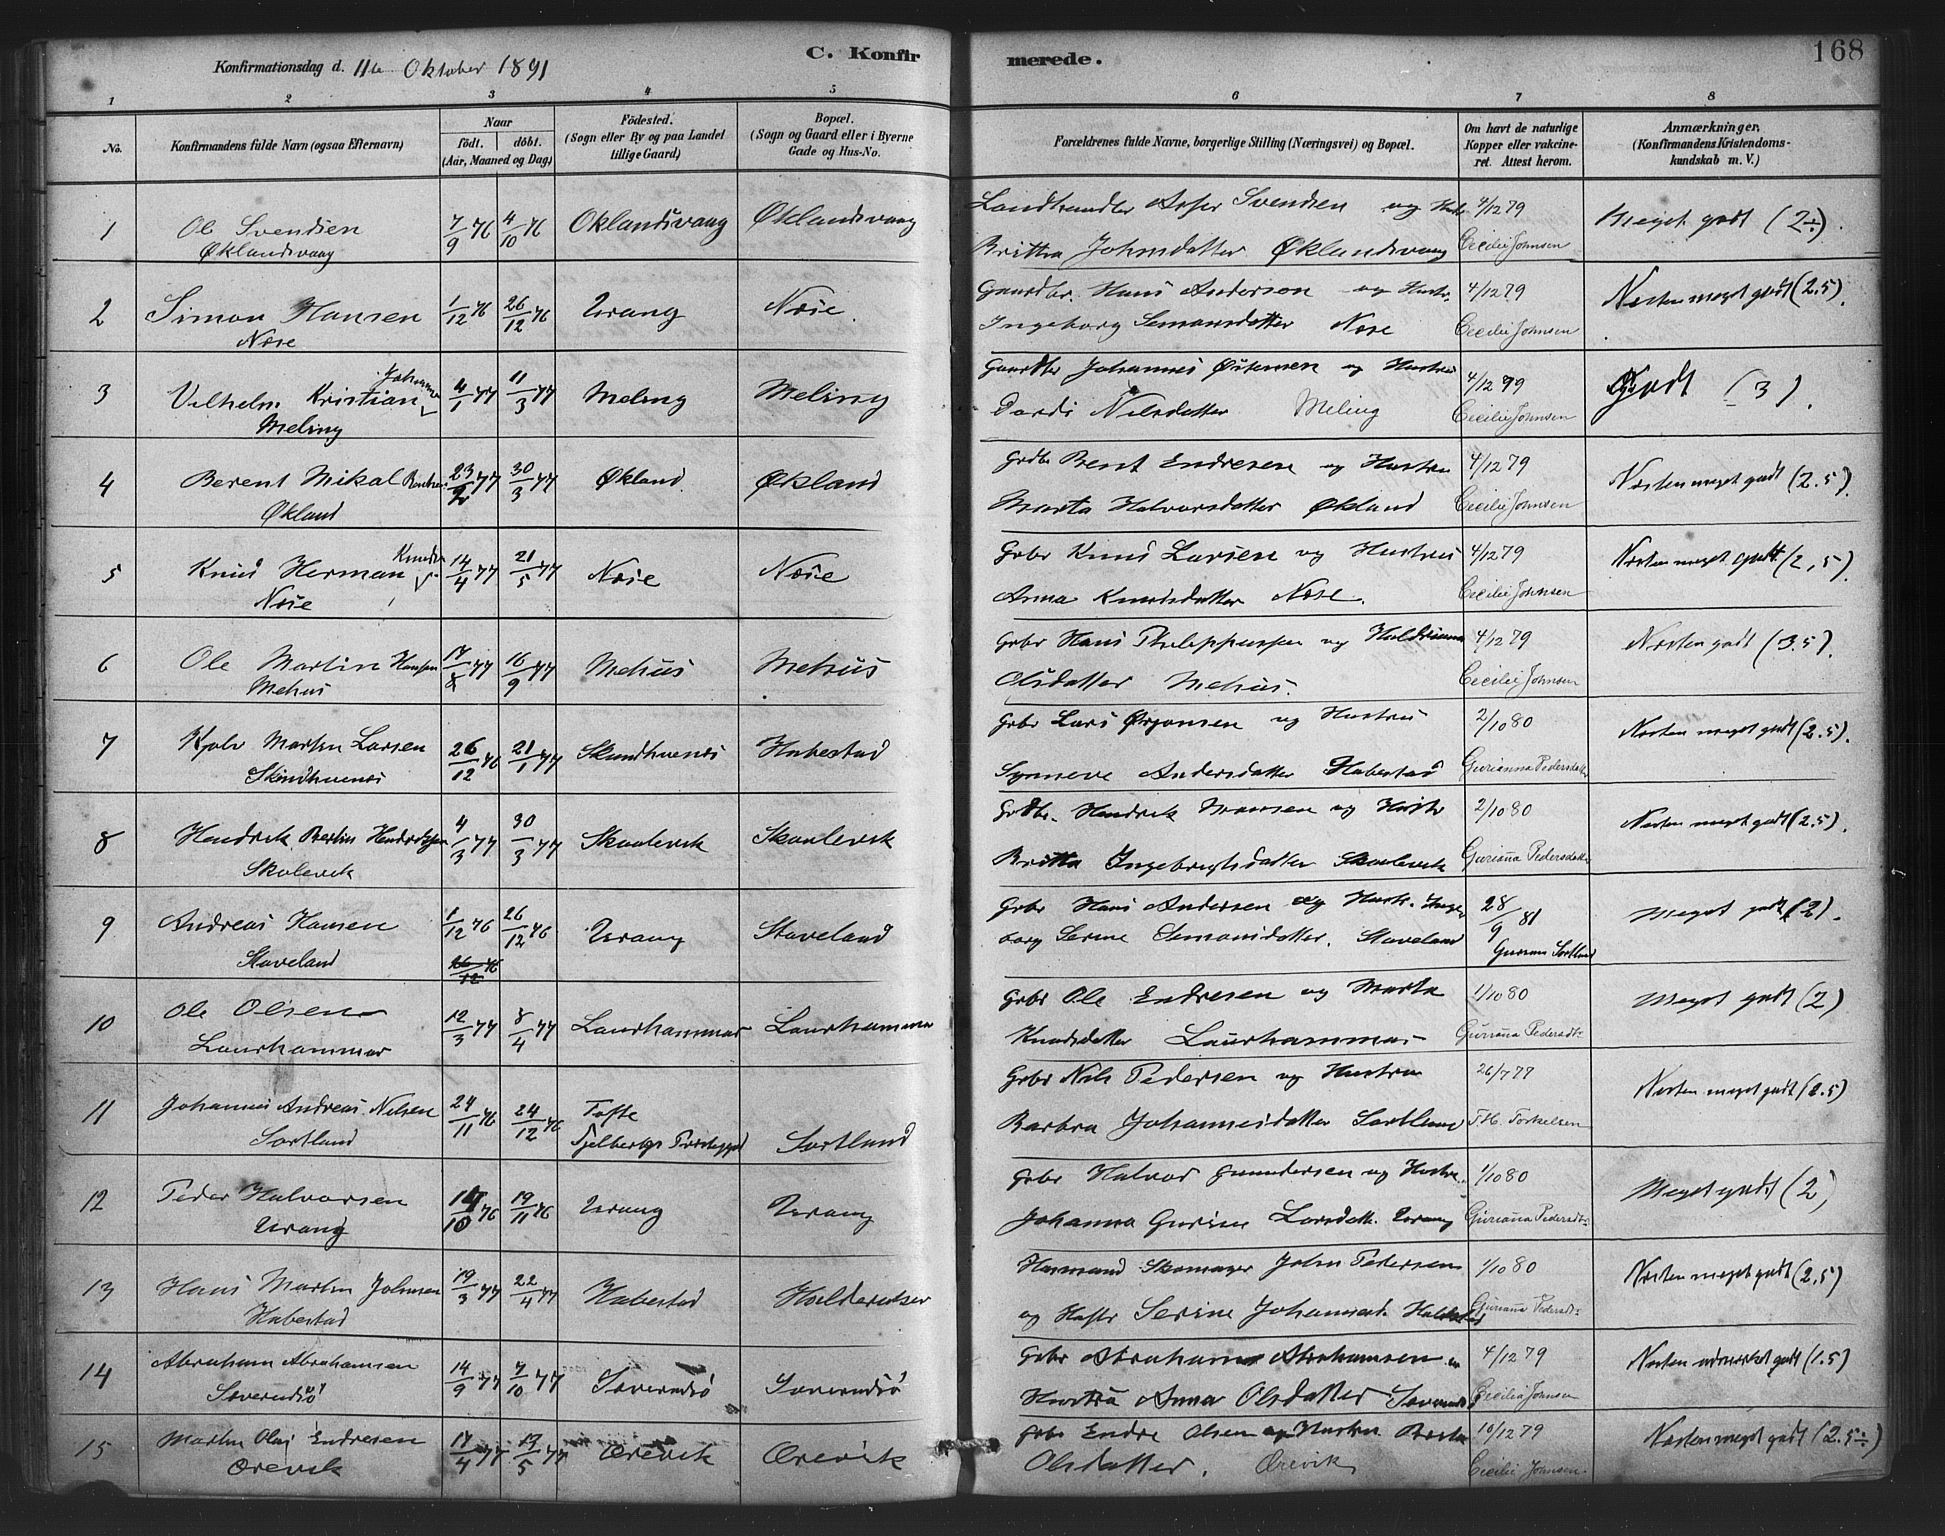 Konfirmationsdag d. 11te Oktober 1891
C. Konfirmerede.
168
1 2 3 4 5 6 7 8
No.
Konfirmandens fulde Navn (ogsaa Efternavn)
Naar
födt. döbt.
(Aar, Maaned og Dag)
Födested.
(Sogn eller By og paa Landet
tillige Gaard)
Bopæl.
(Sogn og Gaard eller i Byerne
Gade og Hus-No.
Forældrenes fulde Navne, borgerlige Stilling (Næringsvei) og Bopæl.
Om havt de naturlige
Kopper eller vakcine-
ret. Attest herom.
Anmærkninger.
(Konfirmandens Kristendoms-
kundskab m. V.)
1 Ol Svendsen 7/9 76 4/10 76 Øklandsvaag Øklandsvaag Landhandler Svendsen og 4/12 79 Meget godt (2÷).
Øklandsvaag Britta Johnsdatter Øklandsvaag Cecilie Johnsen
2 Simon Hansen 1/12 76 26/12 76 Urang Næse. Gaardbr. Hans Anderson og Hustr. 4/12 79 Næsten meget godt (2.5).
Næse Ingeborg Semansdatter Næse Cecilie Johnsen
3 Vilhelm Kristian 4/1 77 11/3 77 Meling Meling Gaardbr Johannes Østensen og Hustru 4/12 79 Godt (3).
Meling Nilsdatter Meling Cecilie Johnsen
4 Berent Mikal 23/2 77 30/3 77 Økland Økland Grdbr Bent Endresen og Hustru 4/12 79 Næsten meget godt (2.5).
Økland Marta Halvorsdatter Økland Cecilie Johnsen
5 Knud Herman 14/4 77 21/5 77 Næse Næse Grbr Knud Larsen og Hustru 4/12 79 Næsten meget godt (2,5).
Næse Anna Knudsdatter Næse. Cecilie Johnsen
6 Ole Martin Hansen 17/8 77 16/9 77 Mehus Mehus Grbr Hans Philippussen og 4/12 79 Næsten godt (3.5).
Mehus Olsdatter Mehus. Cecilie Johnsen
7 Martin Larsen 26/12 76 21/1 77 Skundhuenæs Habestad Grbr Lars Ørjansen og Hustru 2/10 80 Næsten meget godt (2.5).
Synneve Andersdatter Habestad Guriana Pedersdatter
8 Hendrik Bertin Hendriksen 4/3 77 30/3 77 Skaalevik Skaalevik Grdbr. Hendrik og Hustr 2/10 80 Næsten meget godt (2.5).
Skalevik Britta Ingebrigtsdatter Skaalevik Guriana Pedersdatter
9 Andreas Hansen 1/12 76 26/12 76 Urang Staveland Grbr Hans Andersen og Hustr. Inge- 28/9 81 Meget godt (2).
Staveland borg Serine Semansdatter. Staveland Sortland
10 Ole Olsen 12/3 77 8/4 77 Laurhammar Laurhammar Grbr Ole Endresen og Marta 1/10 80 Meget godt (2)
Laurhammar Knudsdatter Laurhammar Guriana Pedersdtr
11 Johannes Andreas Nelsen 24/11 76 24/12 76 Tofte Grbr Nils Pedersen og Hustru 26/7 77 Næsten meget godt (2.5)
Sortland Fjelbergs Præstegjeld Sortland Barbra Johannesdatter Sortland T.H. Torkelsen
12 Peder Halvorsen 14/10 76 19/11 76 Urang Urang Grbr Halvor Gunndersen og Hustru 1/10 80 Meget godt (2)
Urang Johanna Gurine Larsdatt. Urang Guriana Pedersdtr
13 Hans Martin Johnsen 19/3 77 22/4 77 Habestad Husmand Skomager John Pedersen 1/10 80 Næsten meget godt (2,5)
Habestad og Hustr Serine Johannesd. Guriana Pedersdtr
14 Abraham Abrahamsen 14/9 77 7/10 77 Grbr Abraham Abrahamsen 4/12 79 Næsten udmærket godt (1.5)
Hustru Anna Olsdatter Cecilie Johnsen
15 Martin Olaj Endresen 17/4 77 13/5 77 Ørevik Ørevik Grbr Endre Olsen og Hustru 10/12 79 Næsten meget godt (2.5÷)
Ørevik Olsdatter. Ørevik Cecilie Johnsen